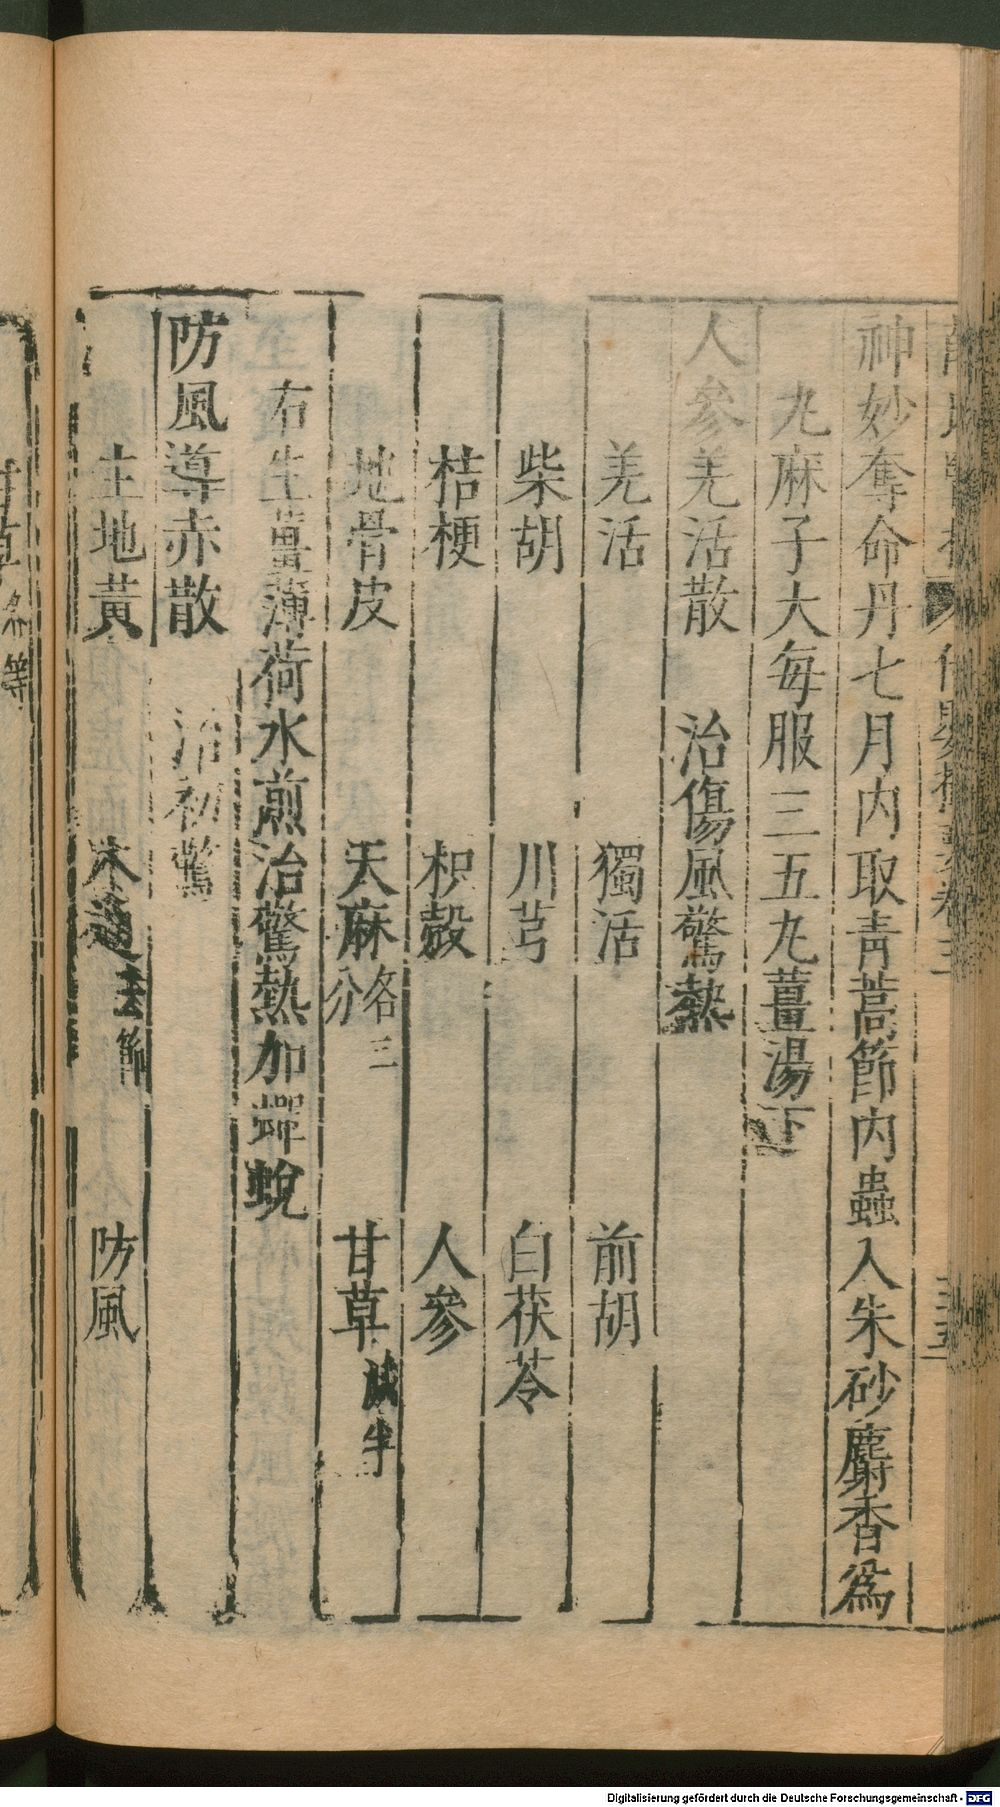 神妙奪命丹七月內取青蒿節內蟲入朱砂麝香爲
丸麻子大每服三五丸薑湯下
人參羌活散 治傷風驚熱
羌活 獨活 前胡
柴胡 川芎 白茯苓
桔梗 枳殼 人參
地骨皮 天麻各三分 甘草減半
右生薑薄荷水煎治驚熱加蟬蛻
防風導赤散 治初驚
生地黃 木通去節 防風
甘草各等
Digitalisierung gefördert durch die Deutsche Forschungsgemeinschaft - DFG